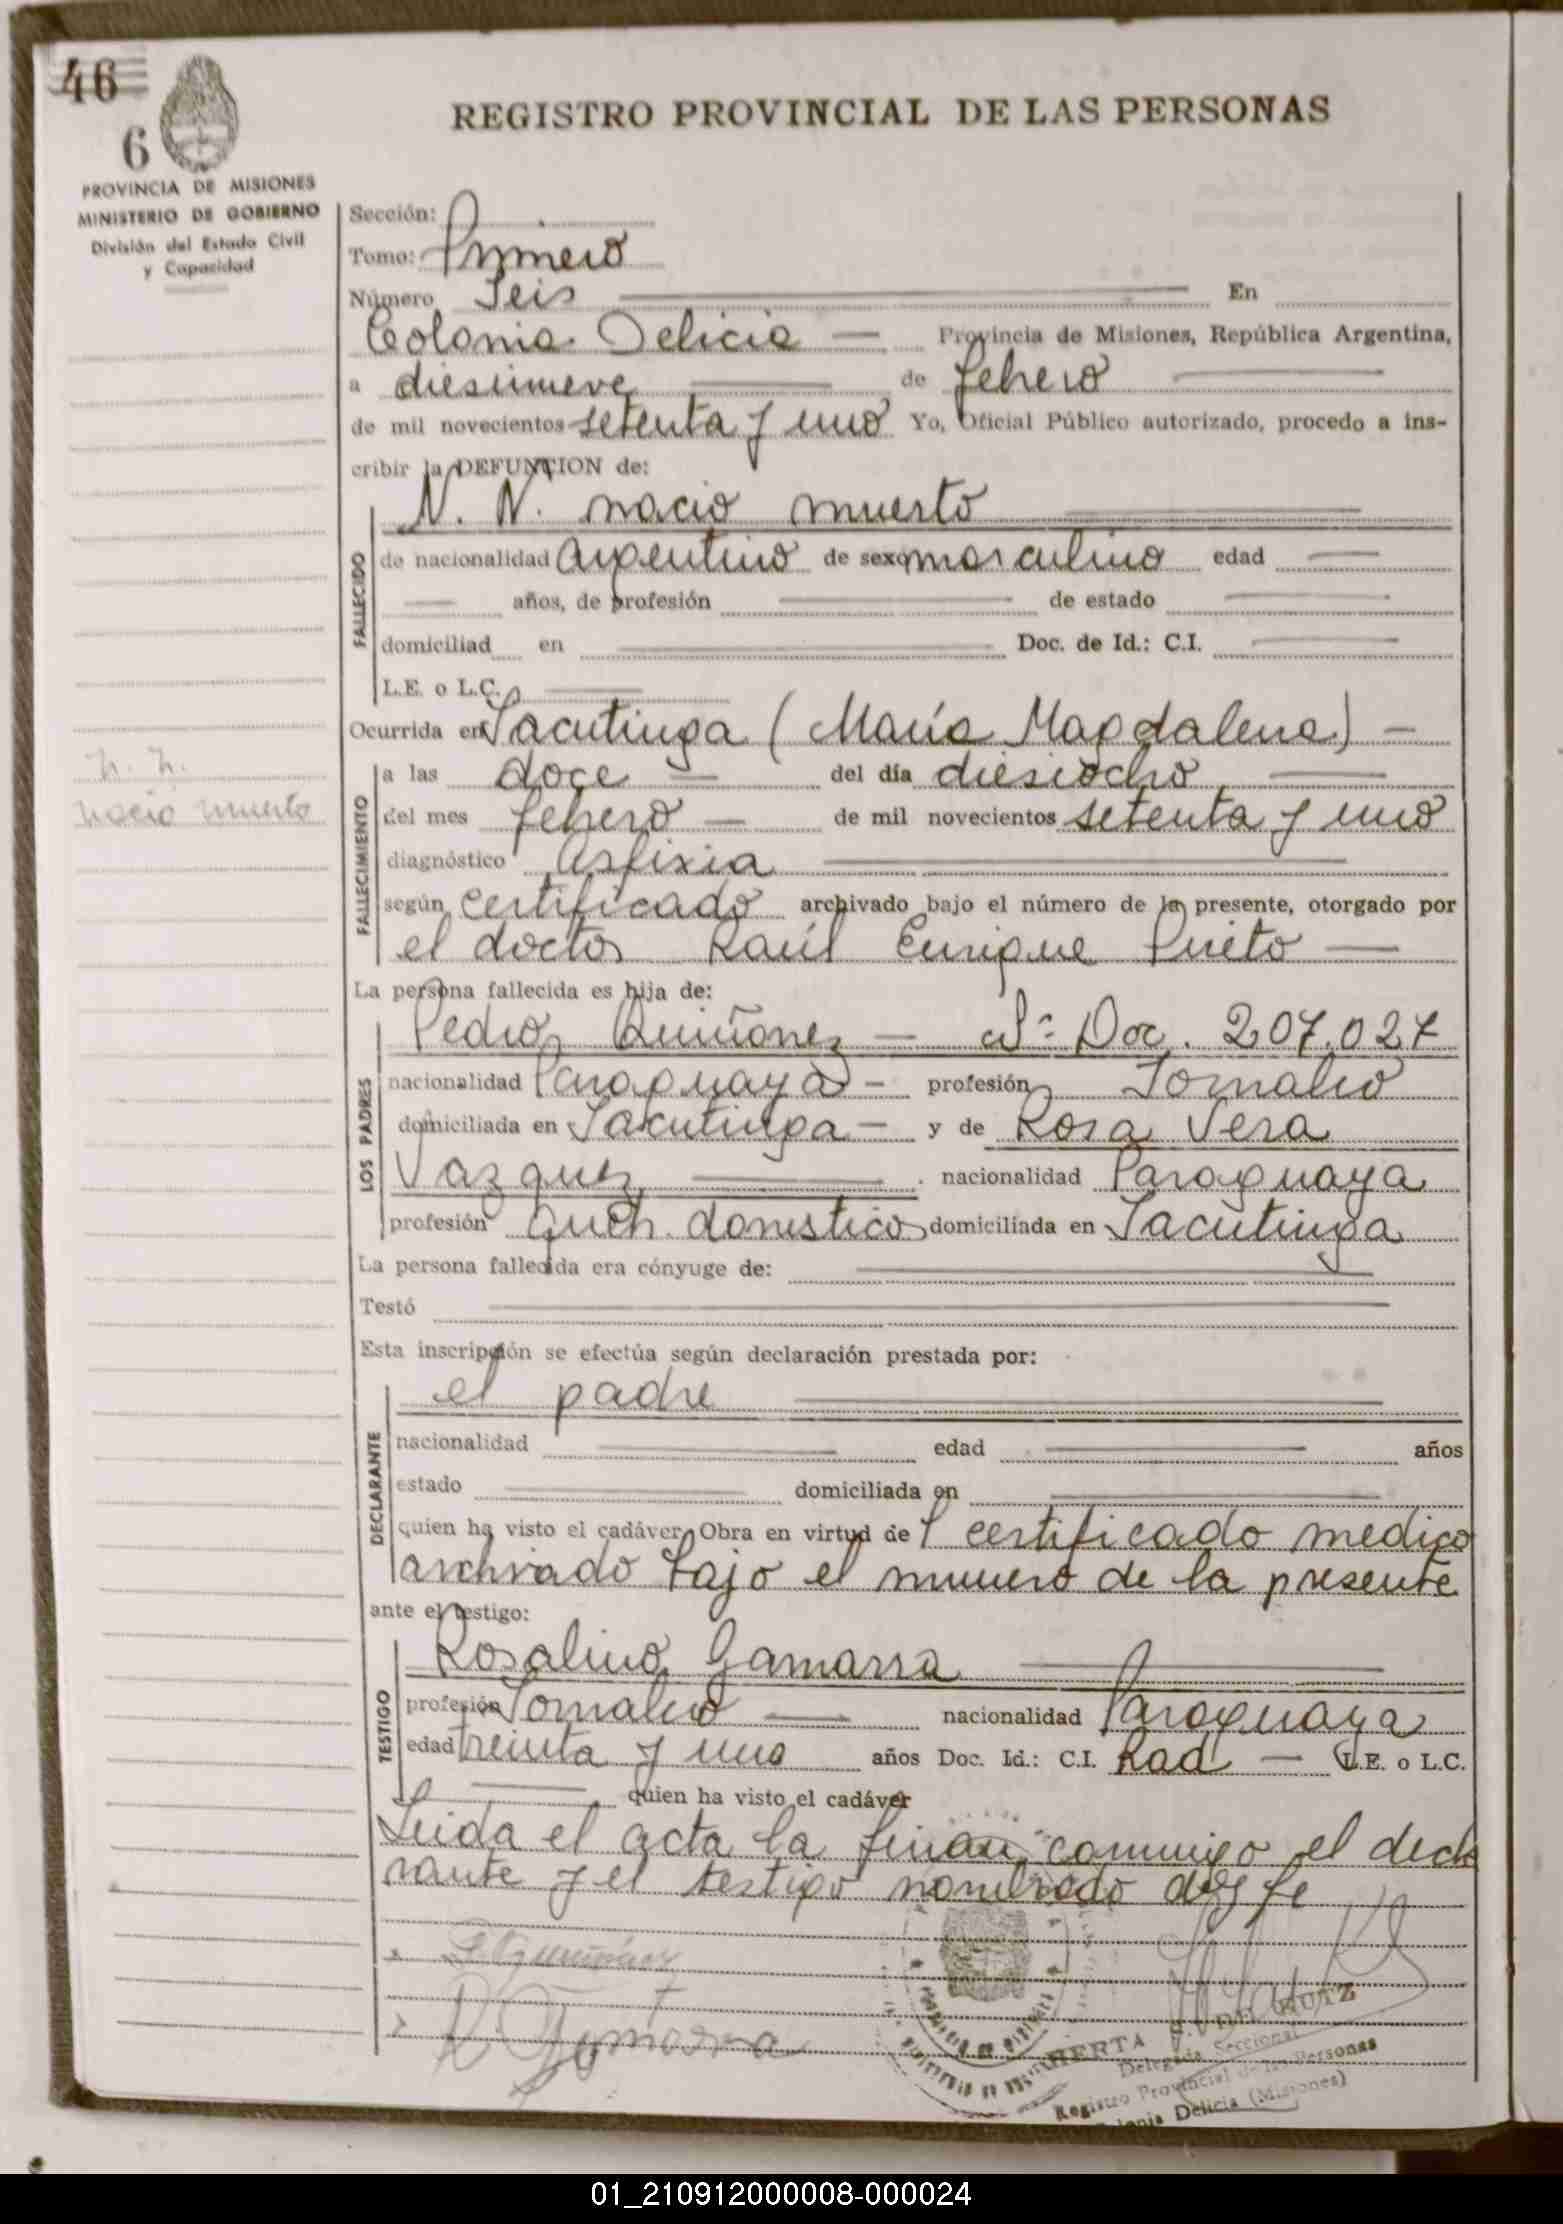 46
6
REGISTRO PROVINCIAL DE LAS PERSONAS
PROVINCIA DE MISIONES
MINISTERIO DE GOBIERNO
División del Estado Civil
y Capacidad
Sección:
Tomo: Primero
Número Seis En
Colonia Delicia Provincia de Misiones, República Argentina,
a diesinueve de febrero
de mil novecientos setenta y uno Yo, Oficial Público autorizado, procedo a ins-
cribir la DEFUNCION de:
N. N. nacio muerto
FALLECIDO
de nacionalidad argentino de sexo masculino edad
años, de profesión de estado
domiciliad en Doc. de Id.: C.I.
L.E. o L.C.
Ocurrida en Sacutinga (María Magdalena)
n. n.
nacio muerto
FALLECIMIENTO
a las doce del día diesiocho
del mes febrero de mil novecientos setenta y uno
diagnóstico Asfixia
según certificado archivado bajo el número de la presente, otorgado por
el doctor Raúl Enrique Prieto
La persona fallecida es hija de:
LOS PADRES
Pedro Quiñonez Doc. 207.027
nacionalidad Paraguaya profesión Jornalero
domiciliada en Sacutinga y de Rosa Vera
Vazquez nacionalidad Paraguaya
profesión queh. domestico domiciliada en Sacutinga
La persona fallecida era cónyuge de:
Testó
Esta inscripción se efectúa según declaración prestada por:
DECLARANTE
el padre
nacionalidad edad años
estado domiciliada en
quien ha visto el cadáver. Obra en virtud de l certificado medico
archivado bajo el numero de la presente
ante el testigo:
TESTIGO
Rosalino Gamarra
profesión Jornalero nacionalidad Paraguaya
edad treinta y uno años Doc. Id.: C.I. Rad L.E. o L.C.
quien ha visto el cadáver
Leida el acta la firman conmigo el decla
rante y el testigo nombrado doy fe
R Gamarra
BERTA
Delegada Seccional
Registro Provincial de las Personas
Colonia Delicia (Misiones)
01_210912000008-000024